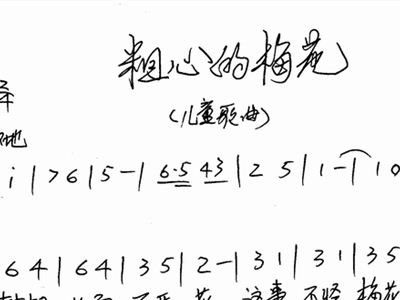 粗心的梅花
(儿童歌曲)
i | 7 6 | 5 - | 6·5 43 | 2 5 | 1 - | 1 0
6 4 | 6 4 | 3 5 | 2 - | 3 1 | 3 1 | 3 5
这事 不怪 梅花